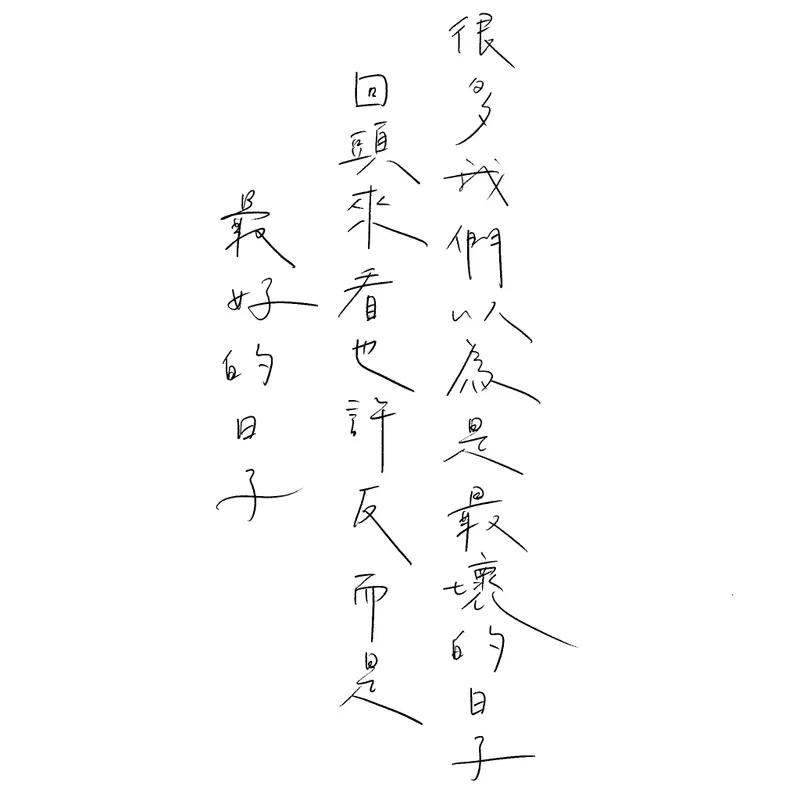 很多我們以為是最壞的日子
回頭來看也許反而是
最好的日子